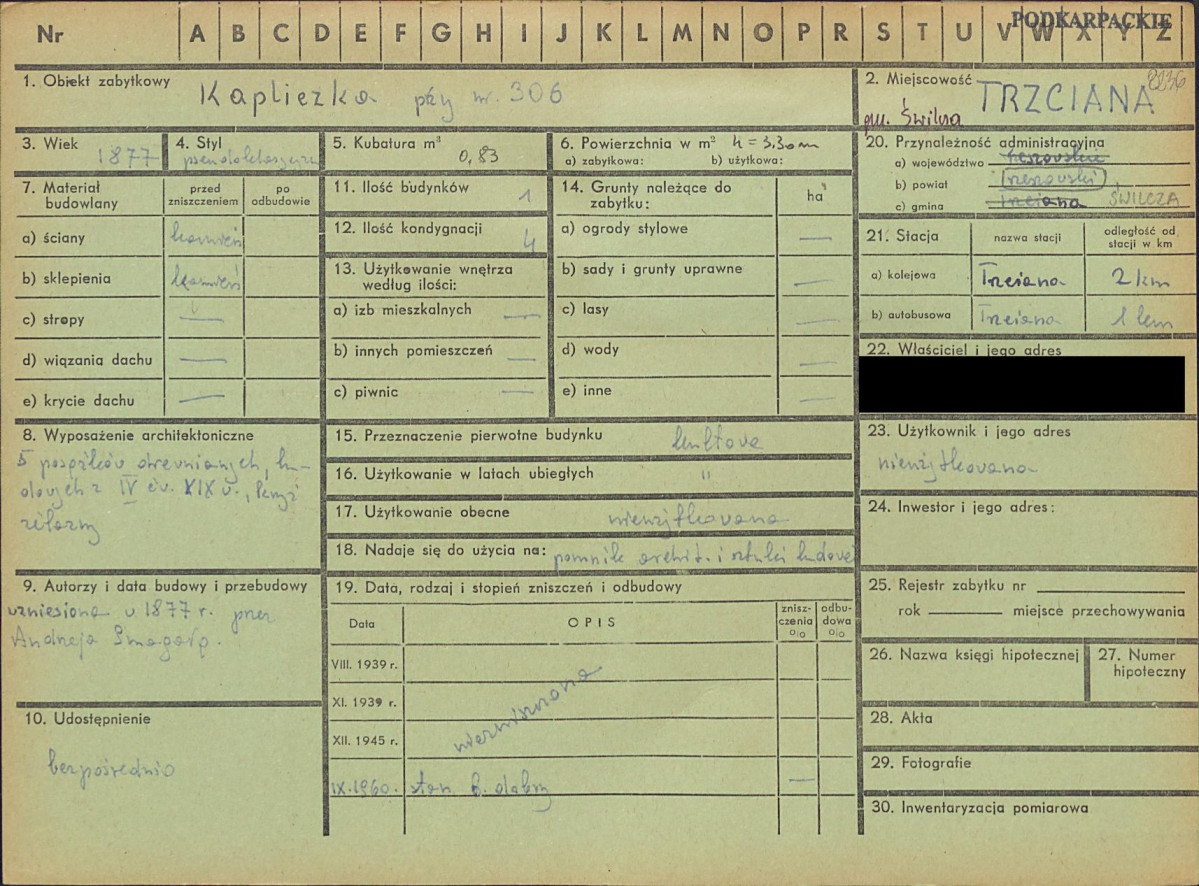 PODKARPACKIE
Nr A B C D E F G H I J K L M N O P R S T U V W X Y Z
1. Obiekt zabytkowy
Kapliczka przy nr. 306
2. Miejscowość
TRZCIANA
gm. Świlcza
3. Wiek
1877
4. Styl
5. Kubatura m³
0,83
6. Powierzchnia w m² h = 3,30 m
a) zabytkowa: b) użytkowa:
7. Materiał budowlany
przed zniszczeniem
po odbudowie
a) ściany kamień
b) sklepienia kamień
c) stropy —
d) wiązania dachu —
e) krycie dachu —
8. Wyposażenie architektoniczne
5 posążków drewnianych, lu-
dowych z IV ćw. XIX w., krzyż
żelazny
9. Autorzy i data budowy i przebudowy
wzniesiona w 1877 r. przez
Andrzeja
10. Udostępnienie
bezpośrednio
11. Ilość budynków 1
12. Ilość kondygnacji 4
13. Użytkowanie wnętrza
według ilości:
a) izb mieszkalnych —
b) innych pomieszczeń —
c) piwnic —
14. Grunty należące do
zabytku:
ha
a) ogrody stylowe —
b) sady i grunty uprawne —
c) lasy —
d) wody —
e) inne —
15. Przeznaczenie pierwotne budynku kultowe
16. Użytkowanie w latach ubiegłych "
17. Użytkowanie obecne nieużytkowana
18. Nadaje się do użycia na: pomnik archit. i sztuki ludowej
19. Data, rodzaj i stopień zniszczeń i odbudowy
Data
OPIS
znisz-
czenia
o/o
odbu-
dowa
o/o
VIII. 1939 r.
XI. 1939 r.
niezniszczona
XII. 1945 r.
IX.1960. stan b. dobry —
20. Przynależność administracyjna
a) województwo rzeszowskie
b) powiat rzeszowski
c) gmina Trzciana ŚWILCZA
21. Stacja
nazwa stacji
odległość od
stacji w km
a) kolejowa Trzciana 2 km
b) autobusowa Trzciana 1 km
22. Właściciel i jego adres
23. Użytkownik i jego adres
nieużytkowana
24. Inwestor i jego adres:
25. Rejestr zabytku nr
rok miejsce przechowywania
26. Nazwa księgi hipotecznej
27. Numer
hipoteczny
28. Akta
29. Fotografie
30. Inwentaryzacja pomiarowa